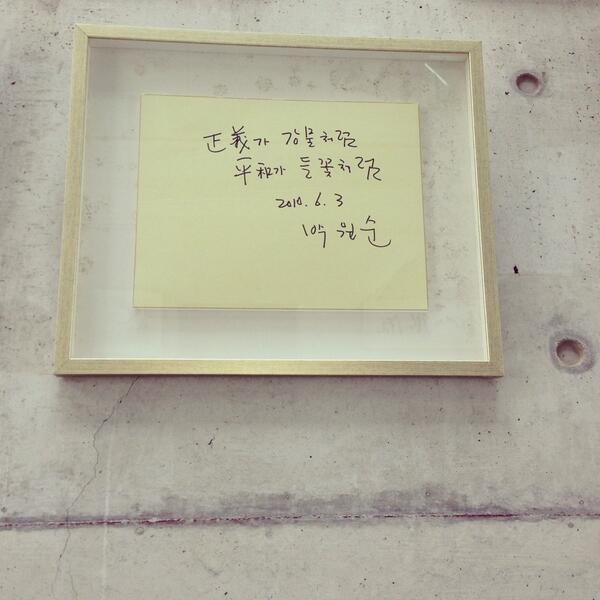 正義가 강물처럼
平和가 들꽃처럼
2010. 6. 3
박원순